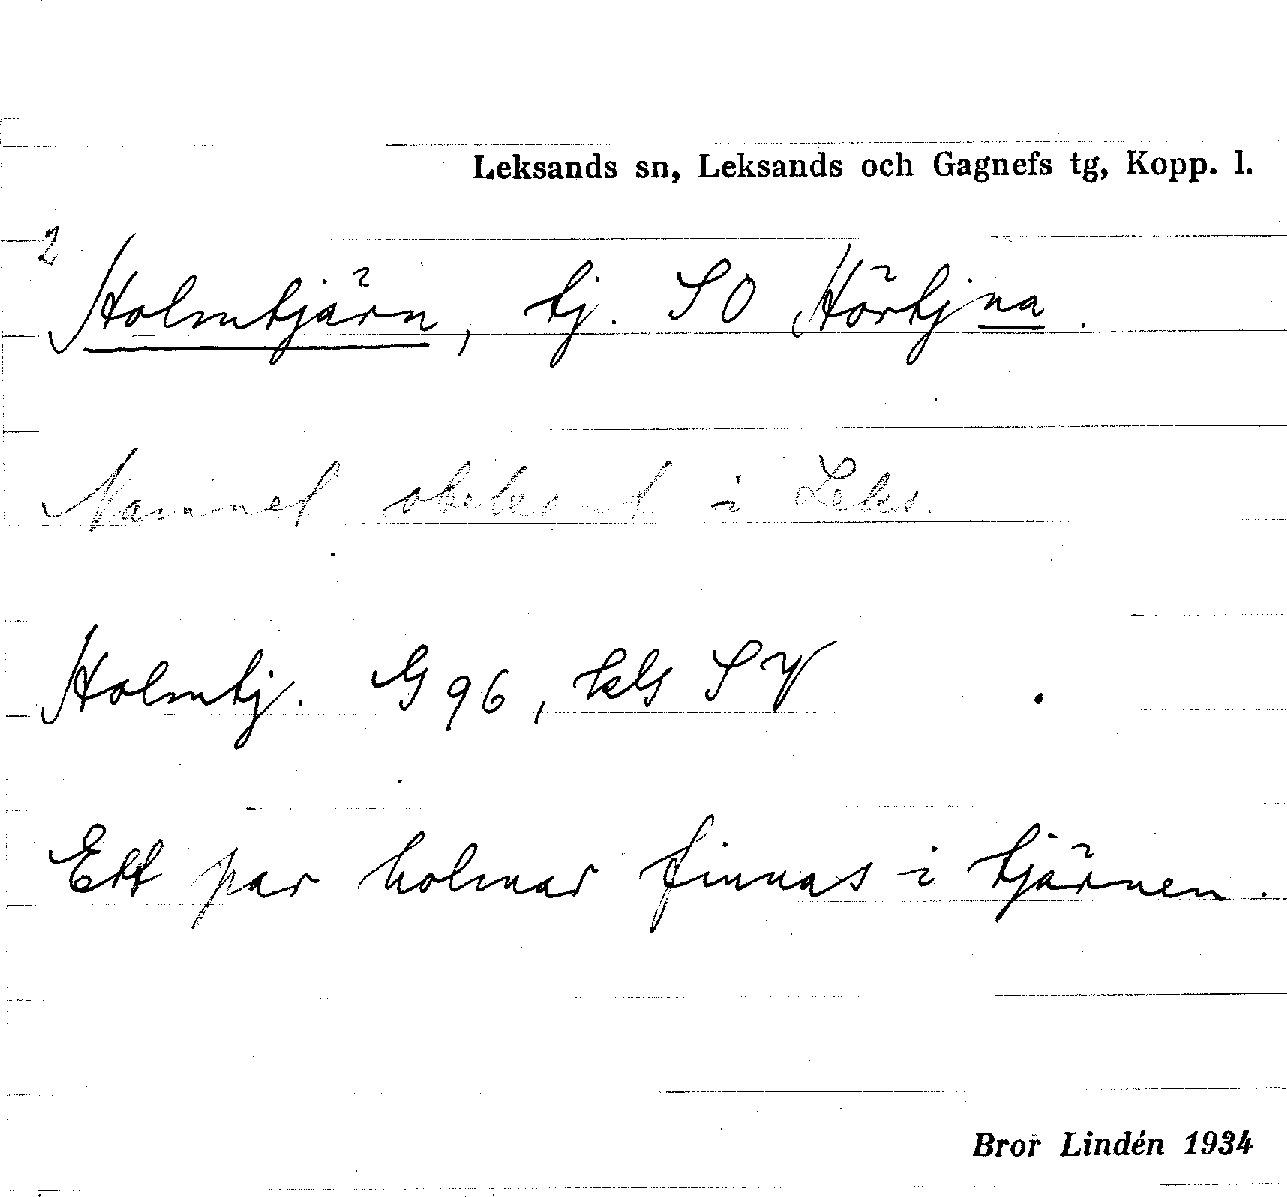 Leksands sn, Leksands och Gagnefs tg, Kopp. l.
2
Holmtjärn, tj. SO Hörtjna.
Namnet obekant i Leks.
Holmtj. G96, kbl SV
Ett par holmar finnas i tjärnen.
Bror Lindén 1934